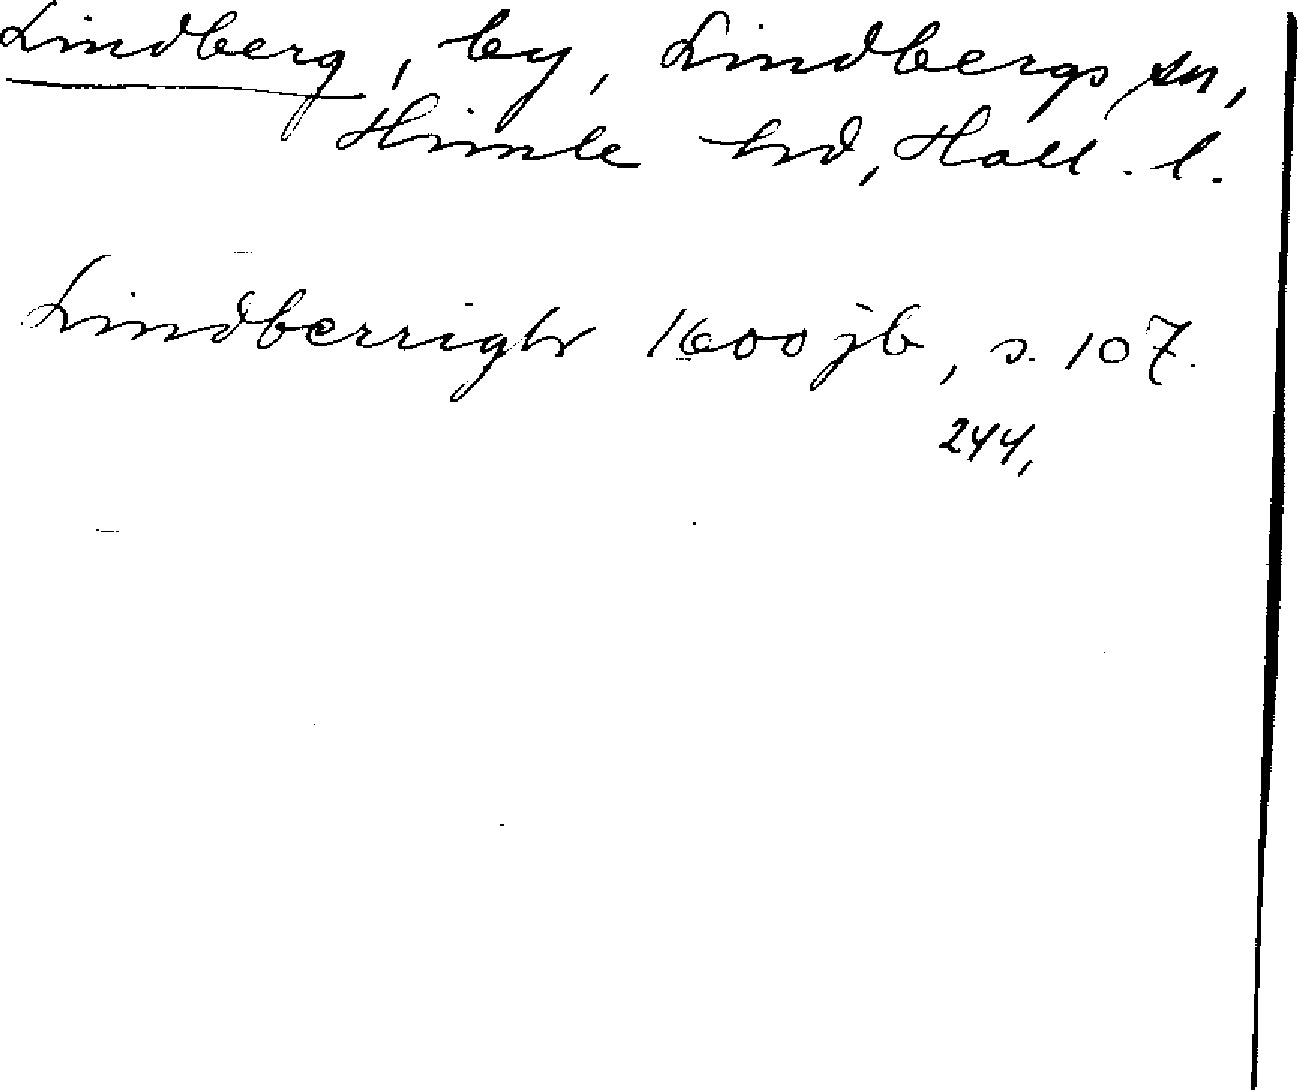 Lindberg, by, Lindbergs sn,
Himle hd, Hall. l.
Lindberrigh 1600 jb, s. 107.
244,